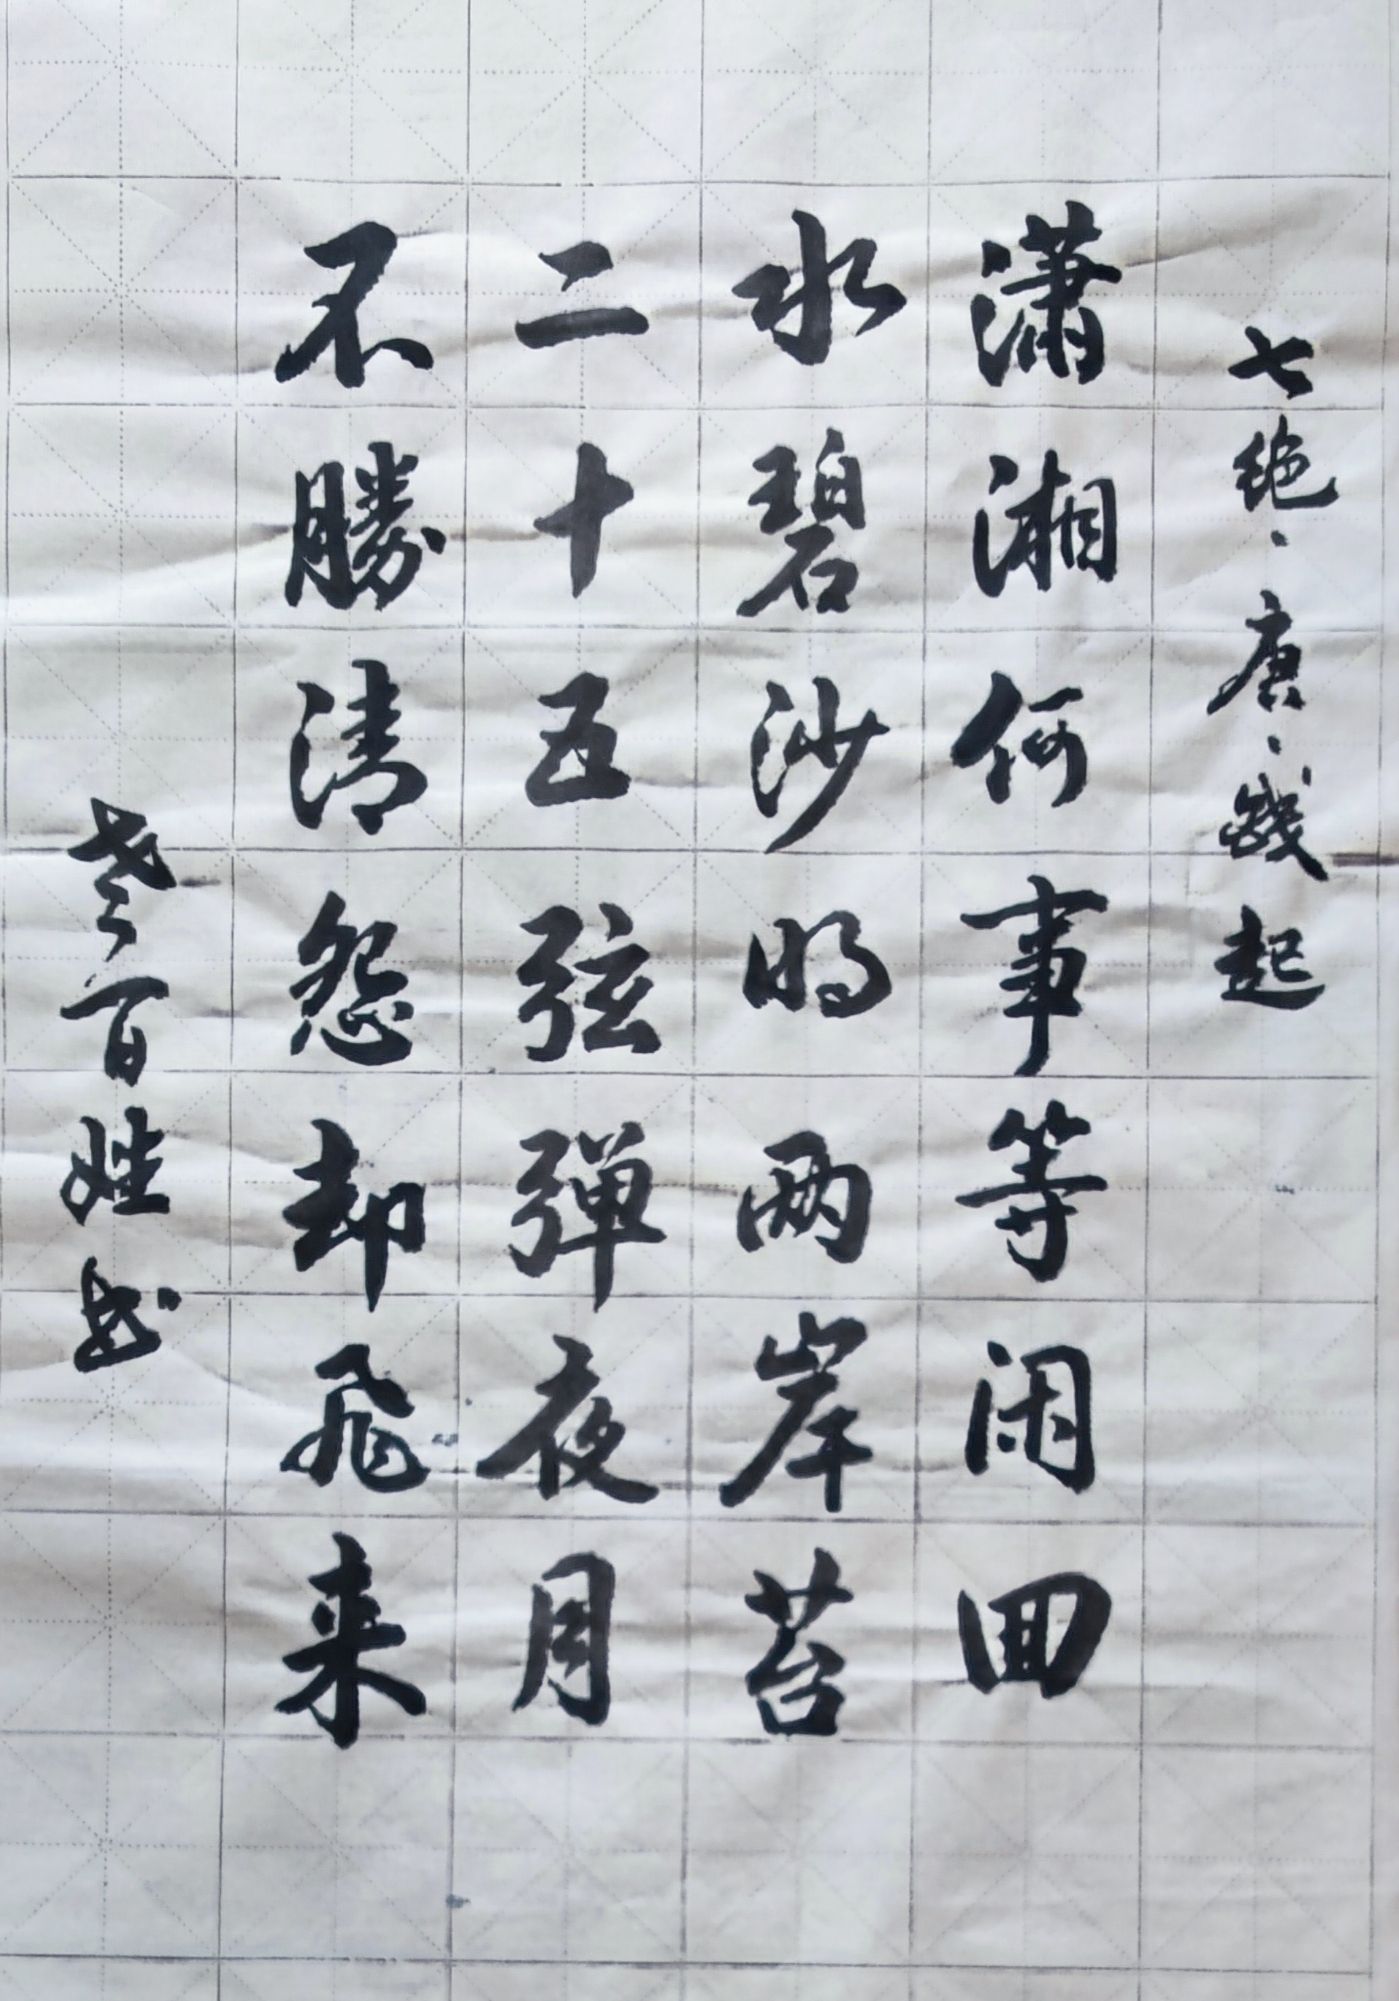 七绝·唐·钱起
潇湘何事等闲回
水碧沙明两岸苔
二十五弦弹夜月
不勝清怨却飛来
老百姓书